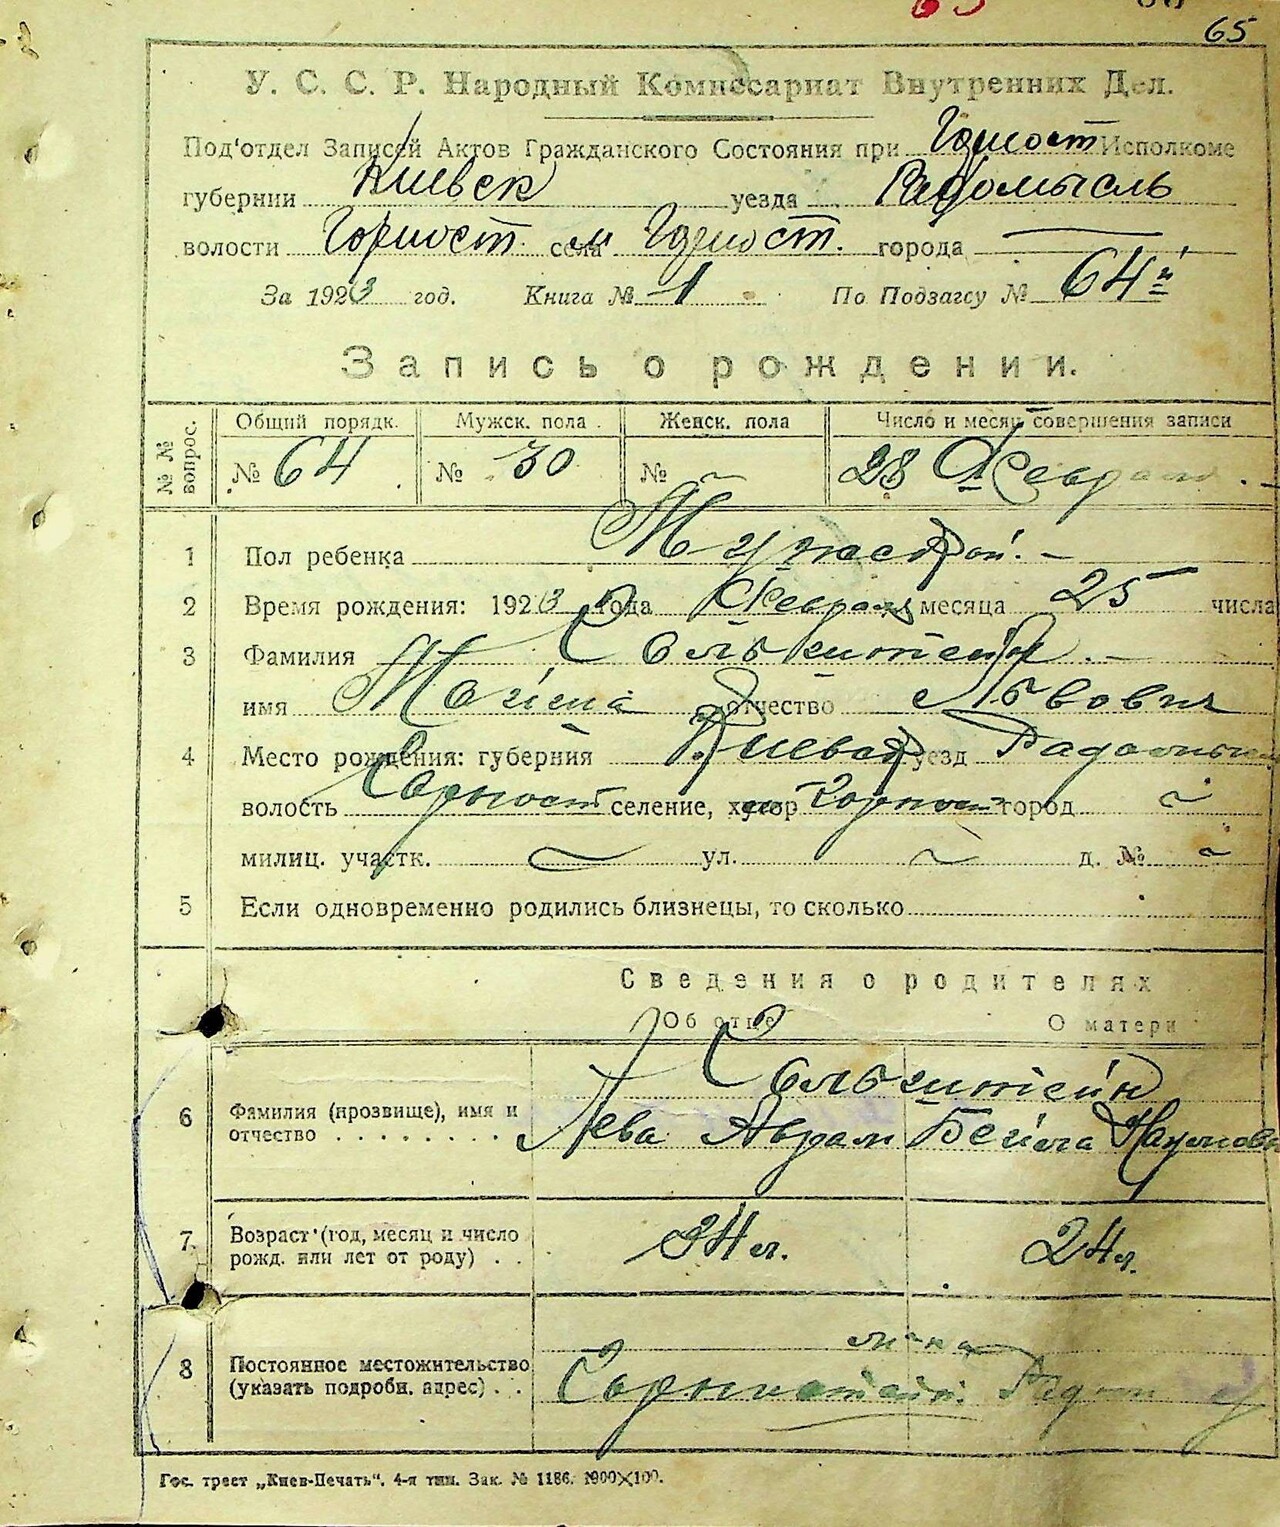 65
У. С. С. Р. Народный Комиссариат Внутренних Дел.
Под'отдел Записей Актов Гражданского Состояния при Горност Исполкоме
губернии Киевск уезда Радомысль
волости Горност. села м Горност. города —
За 1923 год. Книга № 1 По Подзагсу № 64й
Запись о рождении.
№ № вопрос. Общий порядк. Мужск. пола Женск. пола Число и месяц совершения записи
№ 64 № 30 № ~ 28 Февраля
1 Пол ребенка Мужской. —
2 Время рождения: 1923 года Февраля месяца 25 числа
3 Фамилия Гольштейн. —
имя Мойша отчество Львович
4 Место рождения: губерния Киевск уезд
волость Горност селение, хутор Горност город ~
милиц. участк. ~ ул. ~ д. № ~
5 Если одновременно родились близнецы, то сколько
Сведения о родителях
Об отце О матери
Гольштейн
6 Фамилия (прозвище), имя и отчество . . . . . . . . . Лева Аврам Бейла
7 Возраст (год, месяц и число рожд. или лет от роду) . . 34 л. 24 л.
8 Постоянное местожительство (указать подробн. адрес) . . .
Гос. трест „Киев-Печать“. 4-я тип. Зак. № 1186. 1900×100.